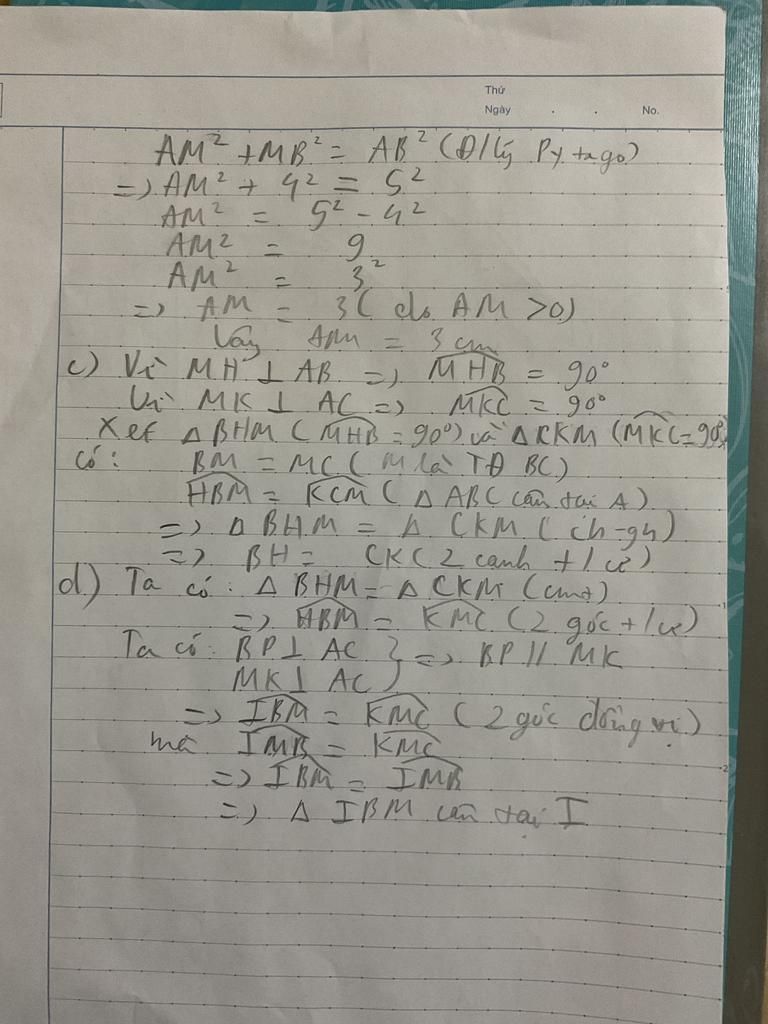 Thứ
Ngày . . No.
AM² + MB² = AB² (Đ/lý Pytago)
=> AM² + 4² = 5²
AM² = 5² - 4²
AM² = 9
AM² = 3²
=> AM = 3 (do AM > 0)
Vậy AM = 3 cm
c) Vì MH ⊥ AB => \widehat{MHB} = 90°
Vì MK ⊥ AC => \widehat{MKC} = 90°
Xét Δ BHM (\widehat{MHB} = 90°) và Δ CKM (\widehat{MKC} = 90°)
có: BM = MC (M là TĐ BC)
\widehat{HBM} = \widehat{KCM} (Δ ABC cân tại A)
=> Δ BHM = Δ CKM (ch-gn)
=> BH = CK (2 cạnh t/ư)
d) Ta có: Δ BHM = Δ CKM (cmt)
=> \widehat{HBM} = \widehat{KMC} (2 góc t/ư)
Ta có: BP ⊥ AC } => BP // MK
MK ⊥ AC
=> \widehat{IBM} = \widehat{KMC} (2 góc đồng vị)
mà \widehat{IMB} = \widehat{KMC}
=> \widehat{IBM} = \widehat{IMB}
=> Δ IBM cân tại I